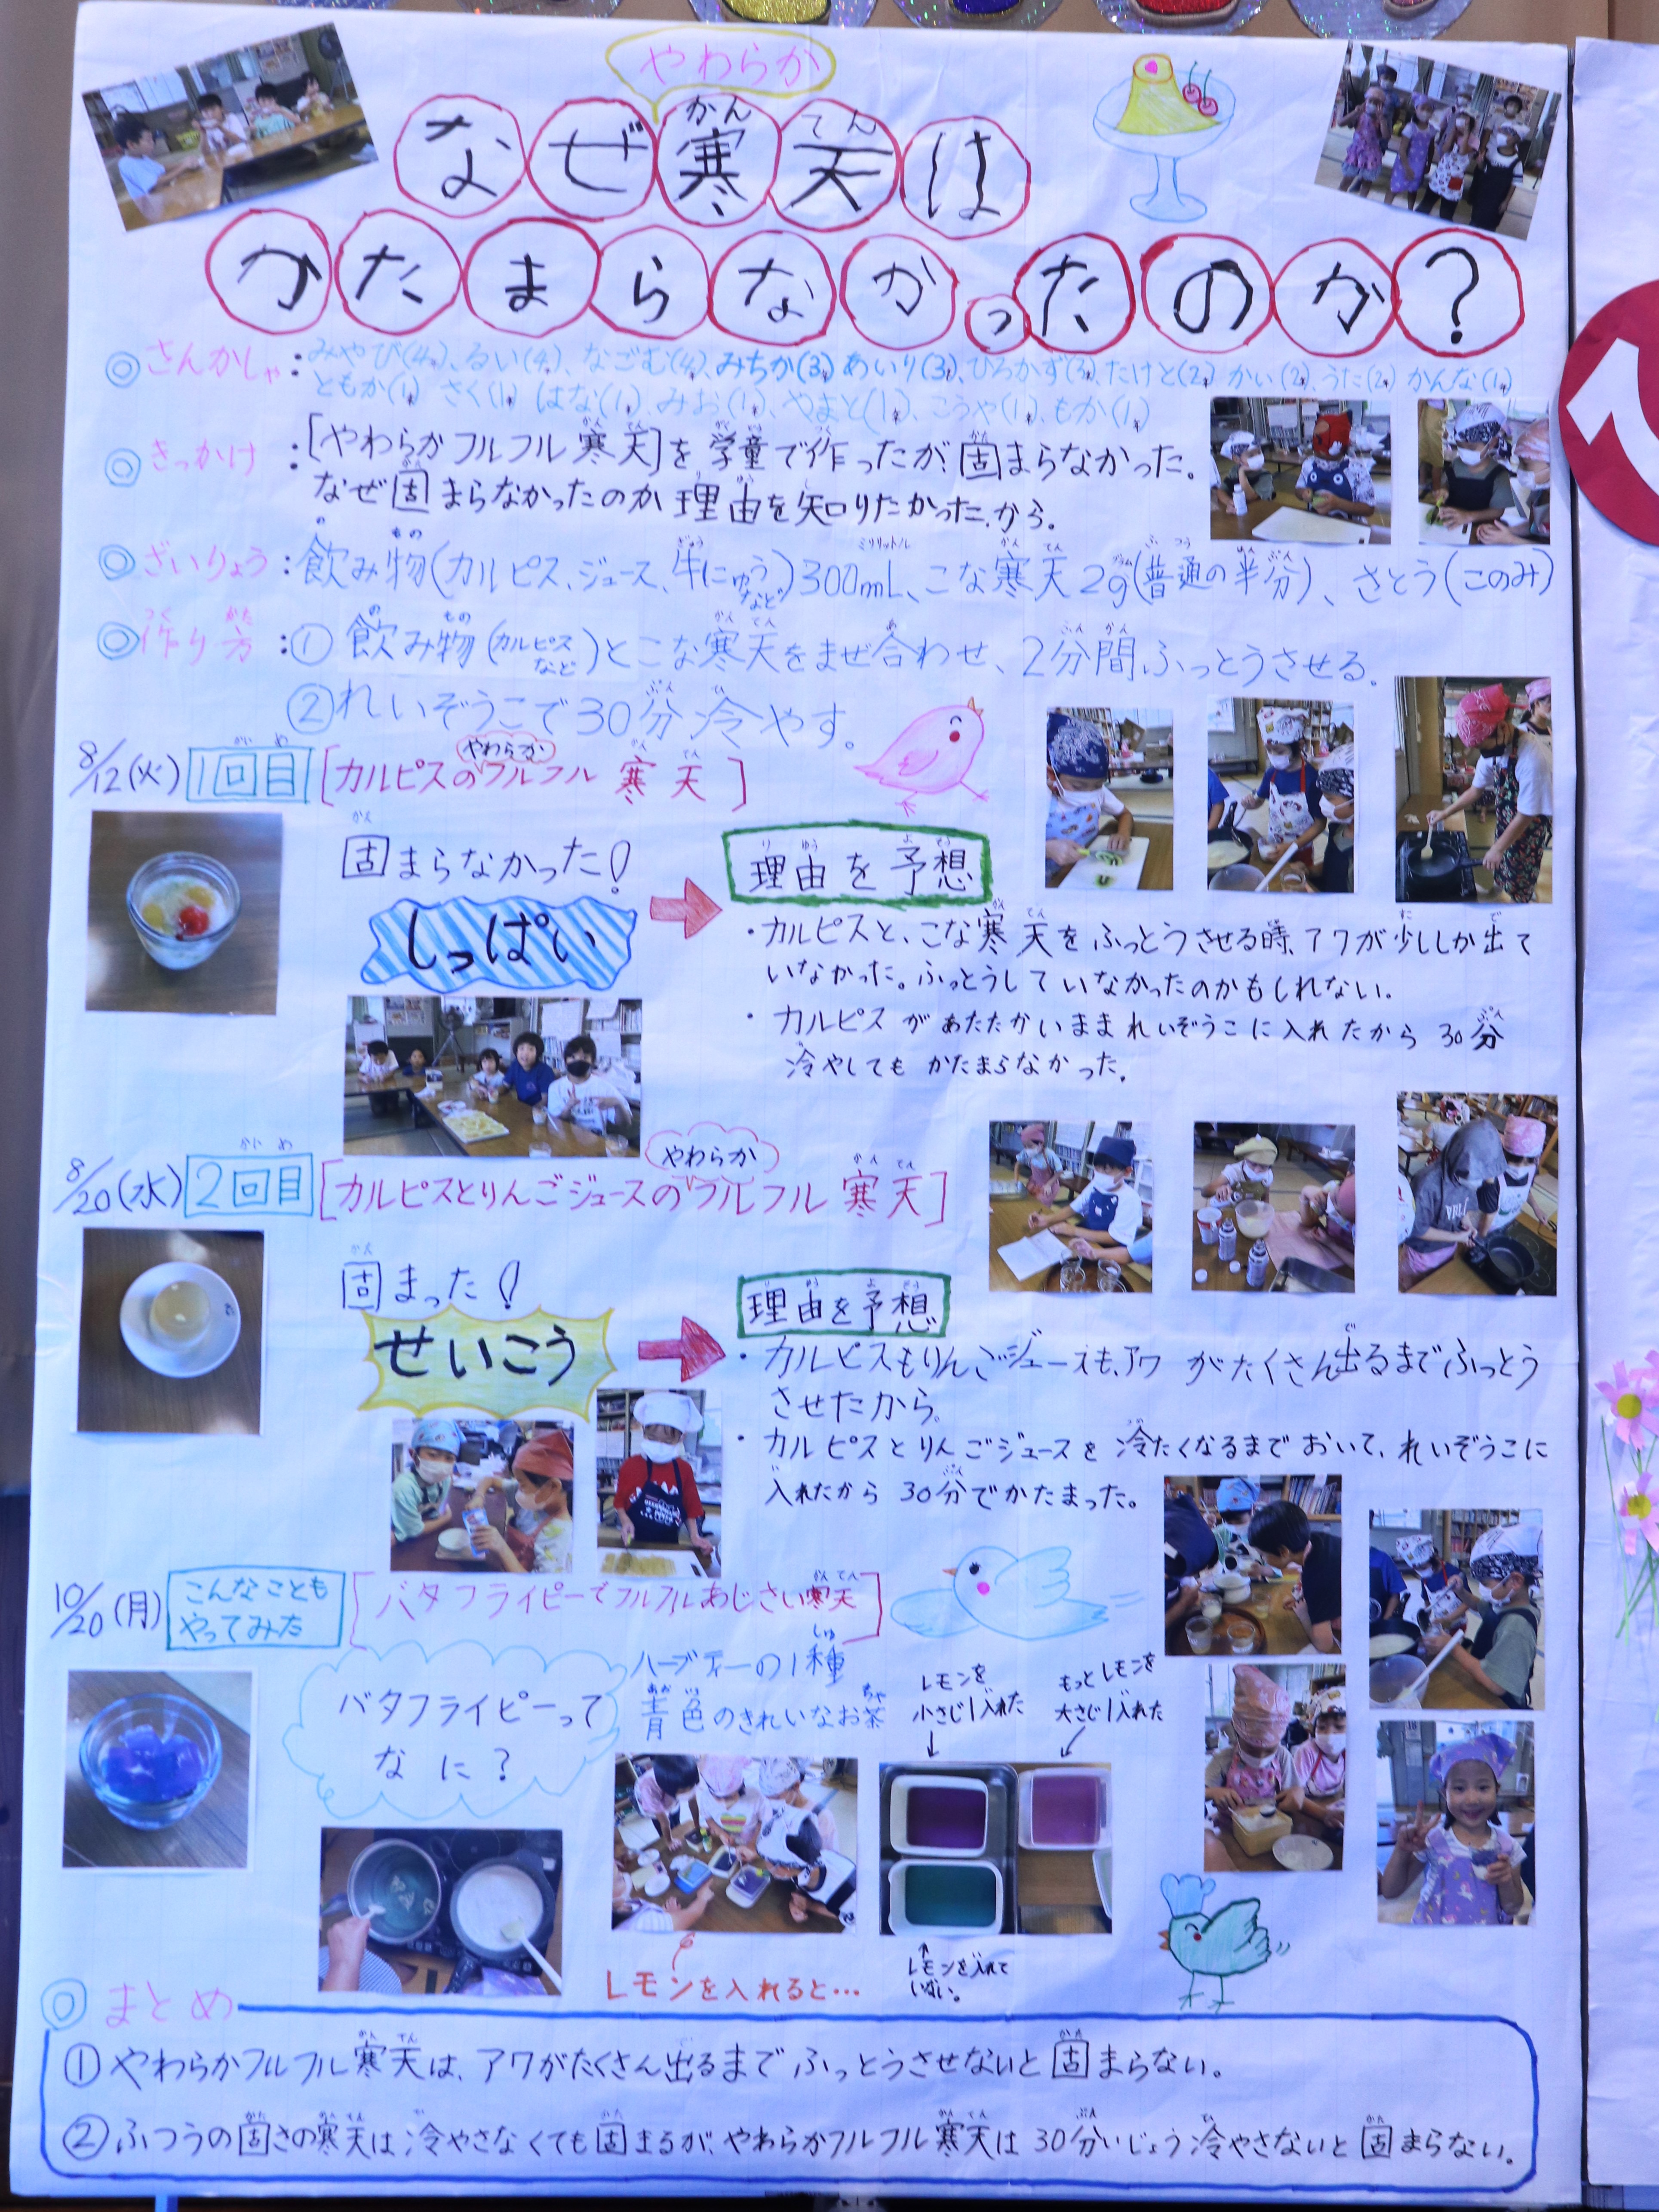 やわらか
なぜ寒天は
かたまらなかったのか?
◎さんかしゃ:みやび(4年)、るい(4年)、なごむ(4年)、みちか(3年)あいり(3年)、ひろかず(3年)、たけと(2年)かい(2年)、うた(2年)かんな(1年)
ともか(1年)さく(1年)はな(1年)、みお(1年)、やまと(1年)、こうや(1年)、もか(1年)
◎きっかけ:[やわらかフルフル寒天]を学童で作ったが、固まらなかった。
なぜ固まらなかったのか理由を知りたかったから。
◎ざいりょう:飲み物(カルピス、ジュース、牛にゅうなど)300mL、こな寒天2g(普通の半分)、さとう(このみ)
◎作り方:①飲み物(カルピスなど)とこな寒天をまぜ合わせ、2分間ふっとうさせる。
②れいぞうこで30分冷やす。
8/12(火)1回目[カルピスのやわらかフルフル寒天]
固まらなかった!
しっぱい
理由を予想
・カルピスと、こな寒天をふっとうさせる時、アワが少ししか出て
いなかった。ふっとうしていなかったのかもしれない。
・カルピスがあたたかいままれいぞうこに入れたから30分
冷やしてもかたまらなかった。
8/20(水)2回目[カルピスとりんごジュースのやわらかフルフル寒天]
固まった!
せいこう
理由を予想
・カルピスもりんごジュースも、アワがたくさん出るまでふっとう
させたから。
・カルピスとりんごジュースを冷たくなるまでおいて、れいぞうこに
入れたから30分でかたまった。
10/20(月)こんなことも
やってみた
[バタフライピーでフルフルあじさい寒天]
バタフライピーって
なに?
ハーブティーの1種
青色のきれいなお茶
レモンを
小さじ1入れた
もっとレモンを
大さじ1入れた
レモンを入れると…
レモンを入れて
いない。
◎まとめ
①やわらかフルフル寒天は、アワがたくさん出るまでふっとうさせないと固まらない。
②ふつうの固さの寒天は冷やさなくても固まるが、やわらかフルフル寒天は30分いじょう冷やさないと固まらない。